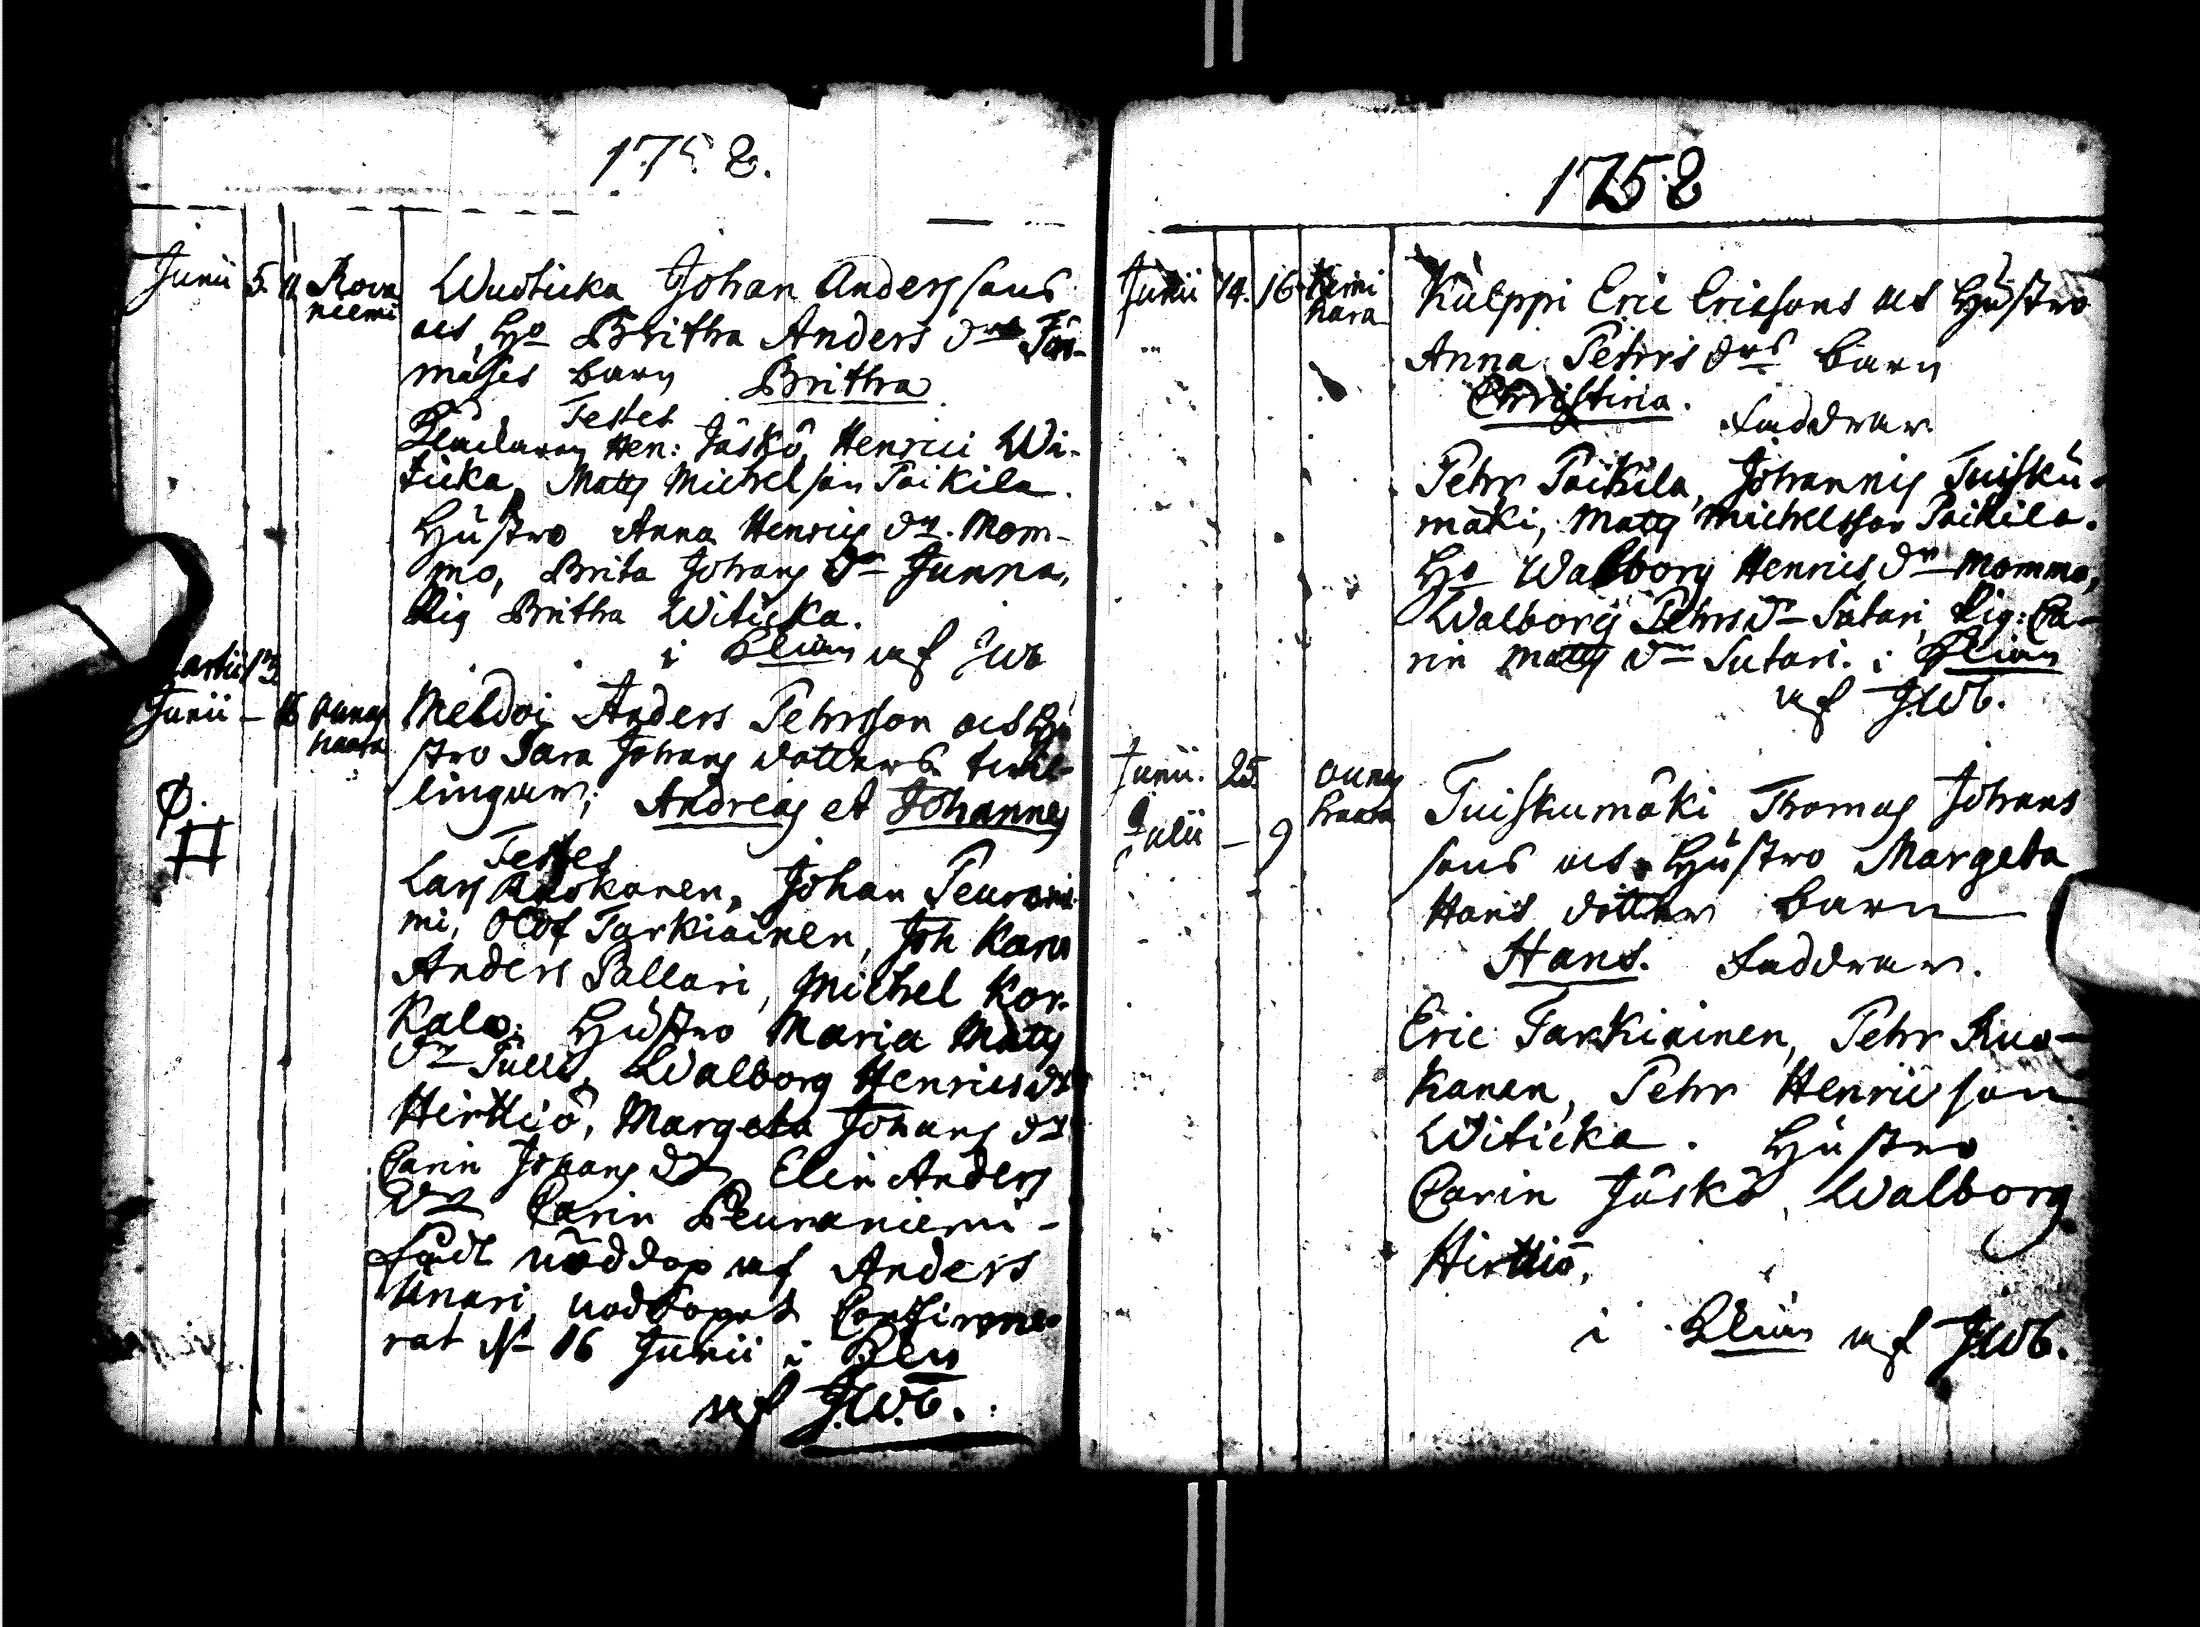 1758.
Junii 5. 11 Rova
niemi
Wuoticka Johan Anderssons
och Ho Britha Anders drs Jäs-
mäses barn Britha
Testes
Klockaren Hen: Jäskö, Henrici Wi-
ticka, Matts Michelson Paikila.
Hustro Anna Henrics dr. Mom-
mo, Brita Johans dr Junna,
Pig Britha Witicka.
i Kkian af JWb
Martii 13.
Junii – 16 Ounas
haara
Meldoi Anders Pehrsson och Hu
stro Sara Johans dotters twil-
lingar; Andreas et Johannes
Testes
Lars Ruokanen, Johan Peuranie
mi, Olof Tarkiainen, Joh Kano
Anders Pallari, Michel Kor-
kalo; Hustro Maria Matts
dr Walborg Henrics dr
Hirttiö, Margeta Johans dr
Carin Johans dr Elin Anders
dr Carin Peuraniemi –
fådt nöddop af Anders
Unari, noddopet Confirme-
rat d. 16 Junii i Kkn
af J.W.b.
1758
Junii 14. 16 Kemi
hara
Kulppi Eric Ericsons och Hustro
Anna Pehrs drs barn
Christina. Faddrar
Pehr Paikila, Johannis Tuisku-
mäki, Matts Michelsson Paikila.
Ho Walborg Henrics dr Mommo,
Walborg Pehrs dr Sutari, Pig: Ca-
rin Matts dr Sutari. i Kkian
af J.Wb.
Junii. 25. Ounas
haara
Julii – 9
Tuiskumäki Thomas Johans
sons och Hustro Margeta
Hans dotter barn
Hans. Faddrar.
Eric Tarkiainen, Pehr Ruo-
kanen, Pehr Henricson
Witicka. Hustro
Carin Jäskö, Walborg
Hirttiö,
i Kkian af J.Wb.